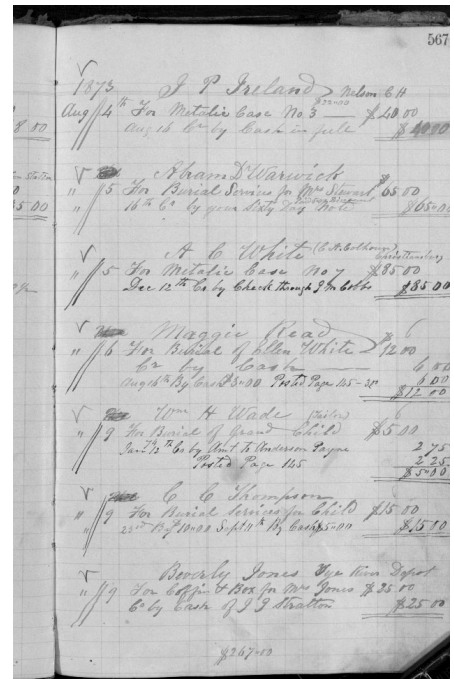 567
1873 J P Ireland Nelson C H
$32.00
Aug 4th For Metalic Case No. 3 $40.00
Aug 16 Cr by Cash in full $40.00
Abram D Warwick
" 5 For Burial Services for Mrs Stewart $65.00
16th Cr by your Sixty Day Note $65.00
A C White (C.H. Calhoun) Christiansburg
" 5 For Metalic Case No 7 $85.00
Dec 12th Cr by Check through J M Cobbs $85.00
Maggie Read $ 6
" 6 For Burial of Ellen White 12.00
Cr by Cash 6 00
Aug 16th By Cash $3.00 Posted Page 145 6 00
$12.00
Wm H Wade (Tailor)
" 9 For Burial of Grand Child $5.00
12th Cr by Amt to Anderson Payne 2 75
Posted Page 145 2 25
$5.00
C C Thompson
" 9 For Burial Services for Child $15.00
22nd By $10.00 Sept 11th By Cash $5.00 $15.00
Beverly Jones Tye River Depot
" 9 For Coffin & Box for Mrs Jones $25.00
Cr by Cash of J J Stratton $25.00
$267.00